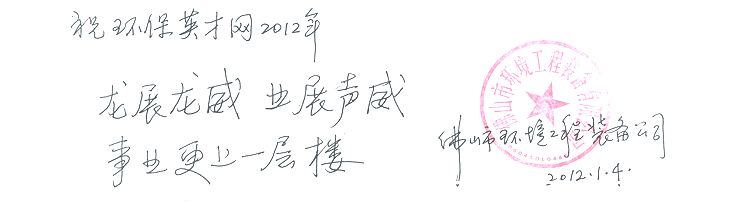 祝环保英才网2012年
龙展龙威 业展声威
事业更上一层楼
佛山市环境工程装备公司
2012.1.4.
佛山市环境工程装备有限公司